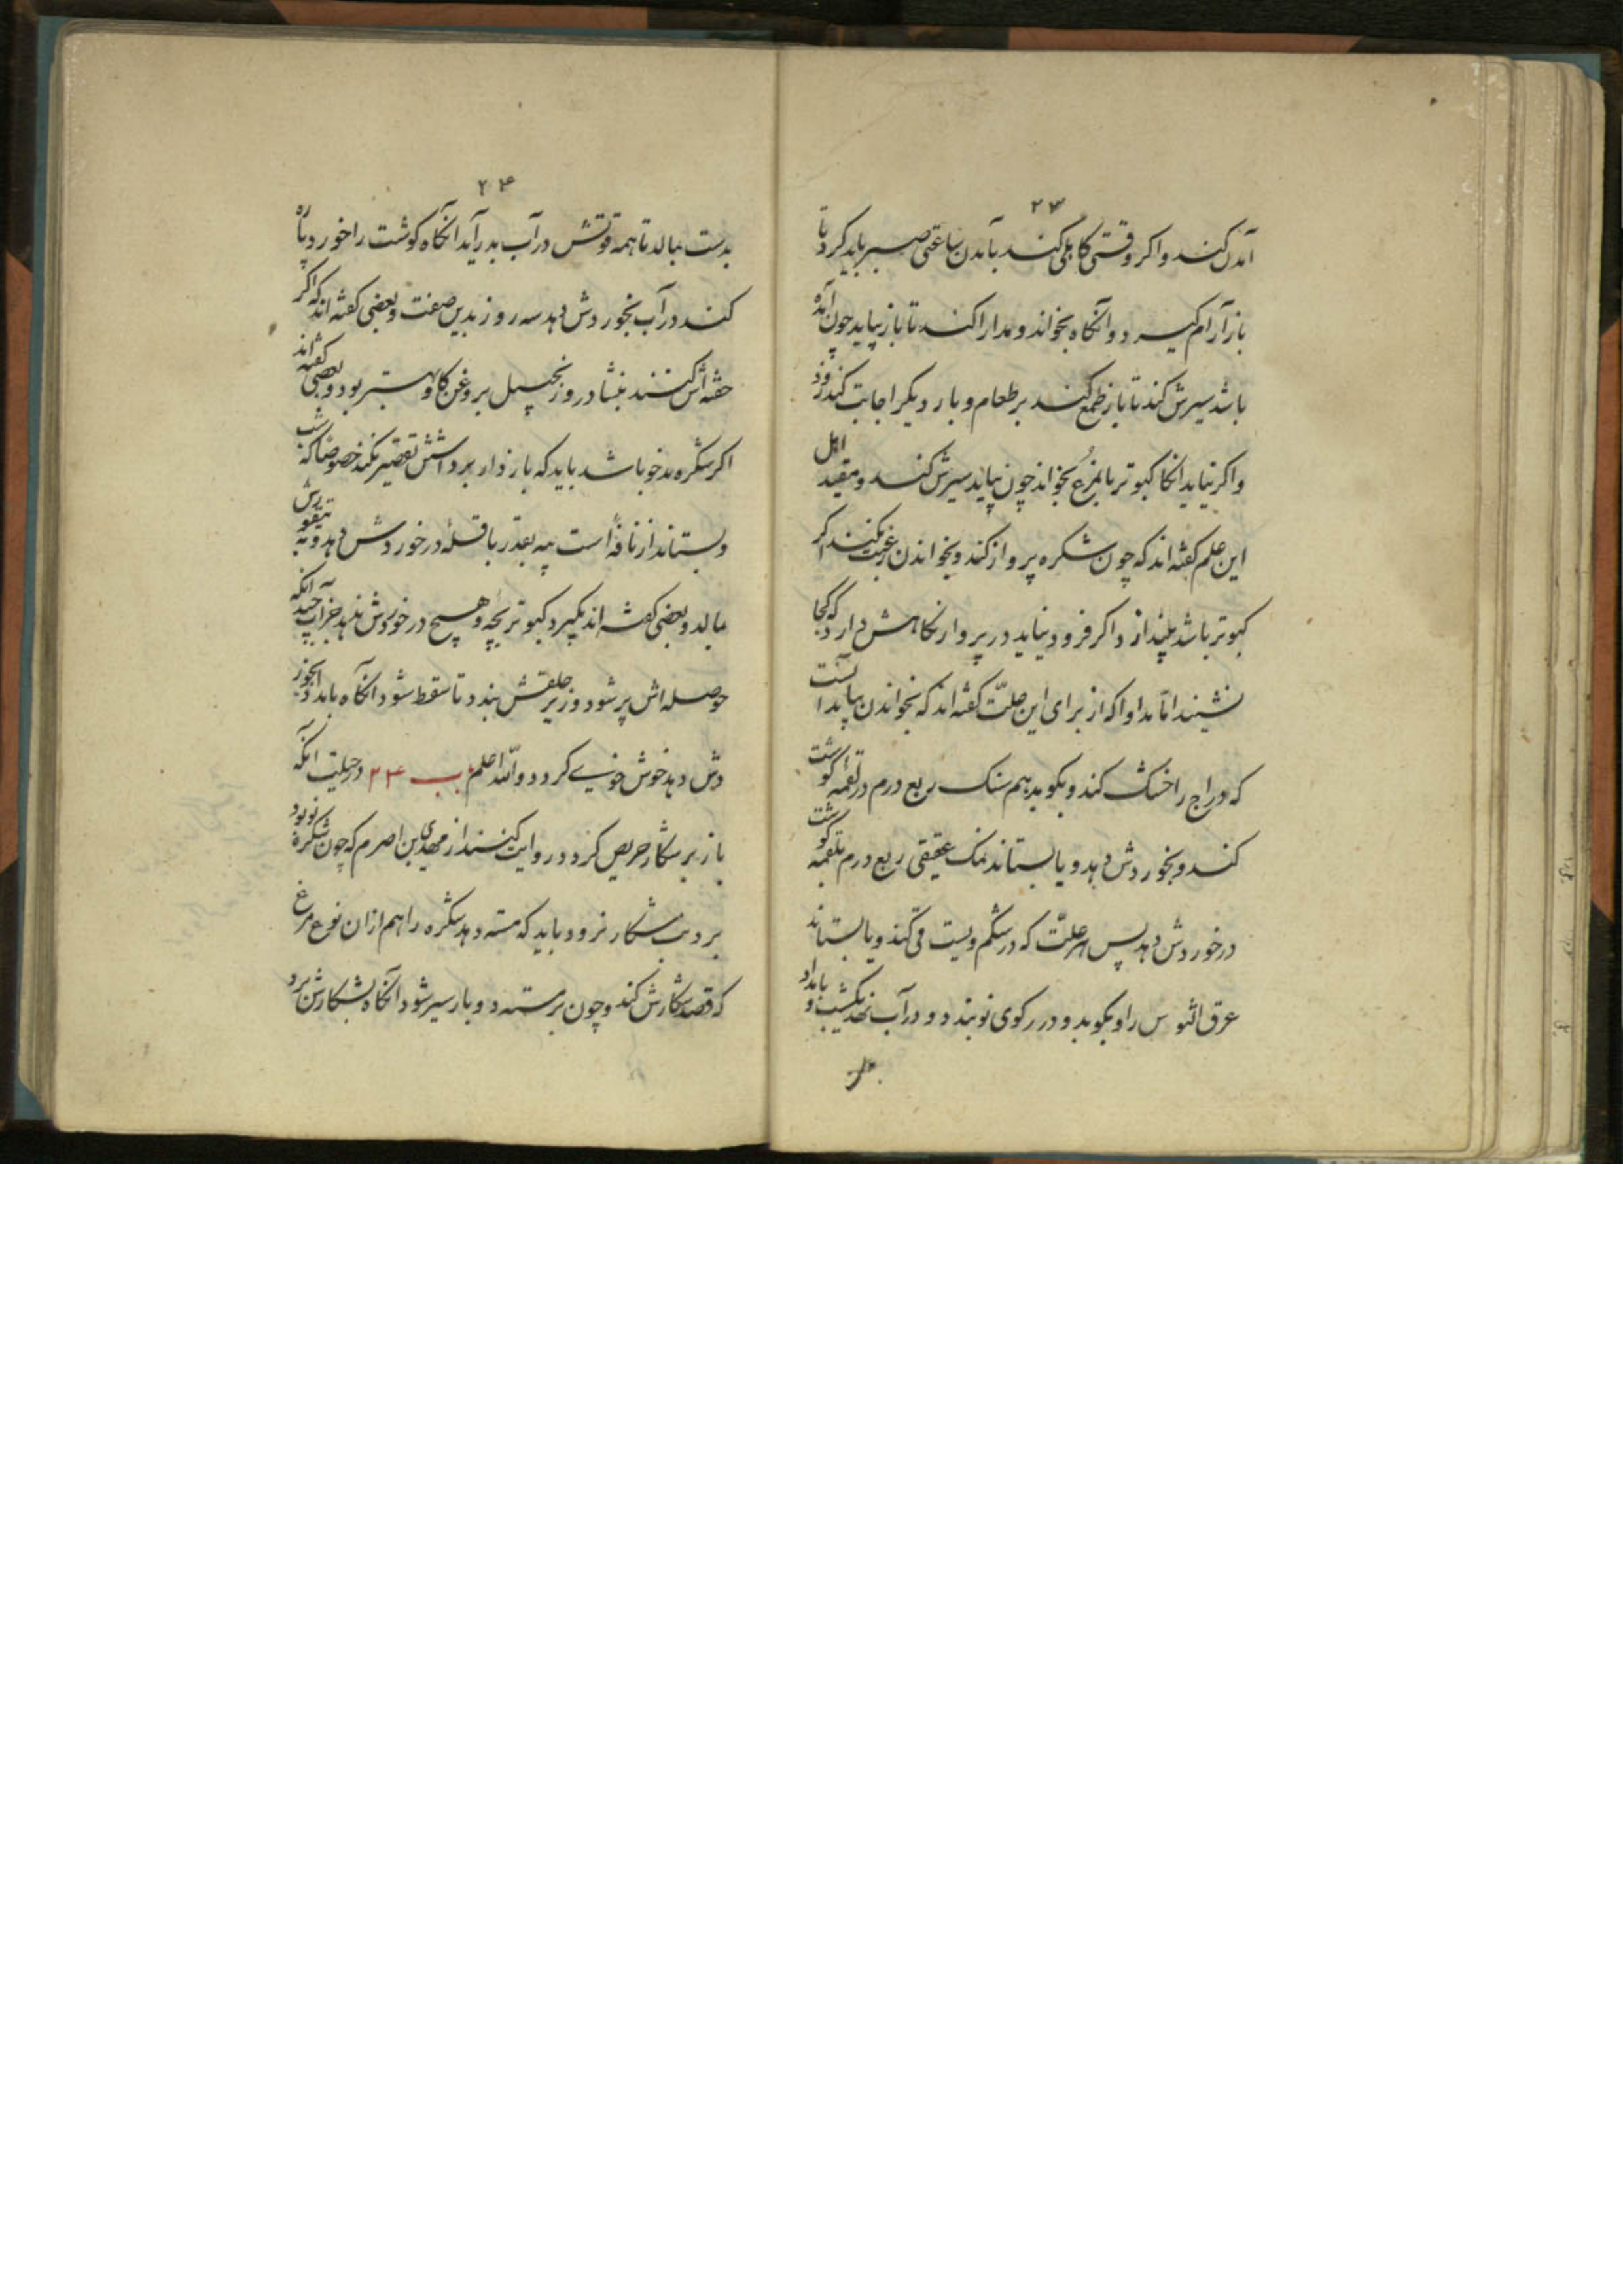 ۲۳
آمدن کند و اکر وقتی کاهلی کند بآمدن ساعتی صبر باید کرد تا
باز آرام کیرد و آنکاه بخواند و مدارا کند تا باز بیاید چون آمده
باشد سیرش کند تا باز طمع کند بر طعام و بار دیکر اجابت کند زود
و اکر نیاید انکا کبوتر یا بمرغ بخواند چون بیاید سیرش کند و اهل
این علم کفته اند که چون شکره پرواز کند و بخواندن رغبت نکند اکر
کبوتر باشد بیندازد اکر فرود نیاید در پرواز نکاهش دارد که کجا
نشیند اما مداوا که از برای این علّت کفته اند که بخواندن بیاید آنست
که دراج را خشک کند و بکوبد بهم سنک ربع درم در لقمه کوشت
کند و بخوردش دهد و یا بستاند نمک عقیقی ربع درم بلقمه کوشت
درخوردش دهد پس هر علّت که در شکم ویست قی کند و یا بستاند
عرق السوس را و بکوبد و در رکوی نو بندد و در آب نهد یکشب و بامداد
۲۴
بدست بمالد تا همه قوتش در آب بدر آید انکاه کوشت را خورد پاره
کند در آب بخوردش دهد سه روز بدین صفت و بعضی کفته اند که اکر
حقنه اش کنند بنشادر و زنجبیل بروغن کاو بهتر بود و بعضی کفته اند
اکر شکره بدخو باشد باید که بازدار برداشتنش تقصیر نکند خصوصا که شب
و بستاند از نافه است پیه بقدر باقله درخوردش دهد و به
مالد و بعضی کفته اند بکیرد کبوتر بچه و هیچ درخوردش ندهد جز آب چندانکه
حوصله اش پر شود و زیر حلقش بندد تا سقط شود انکاه بامداد بخور
دش دهد خوش خوی کردد و اللّه اعلم باب ۲۴ در حیلت آنکه
باز بر شکار حریص کردد روایت کنند از مهدی بن اصرم که چون شکره نو بود
بر دنب شکار نرود باید که مسته دهد شکره را هم از ان نوع مرغ
که قصد شکارش کند و چون بر مسته دو بار سیر شود آنکاه بشکارش برد